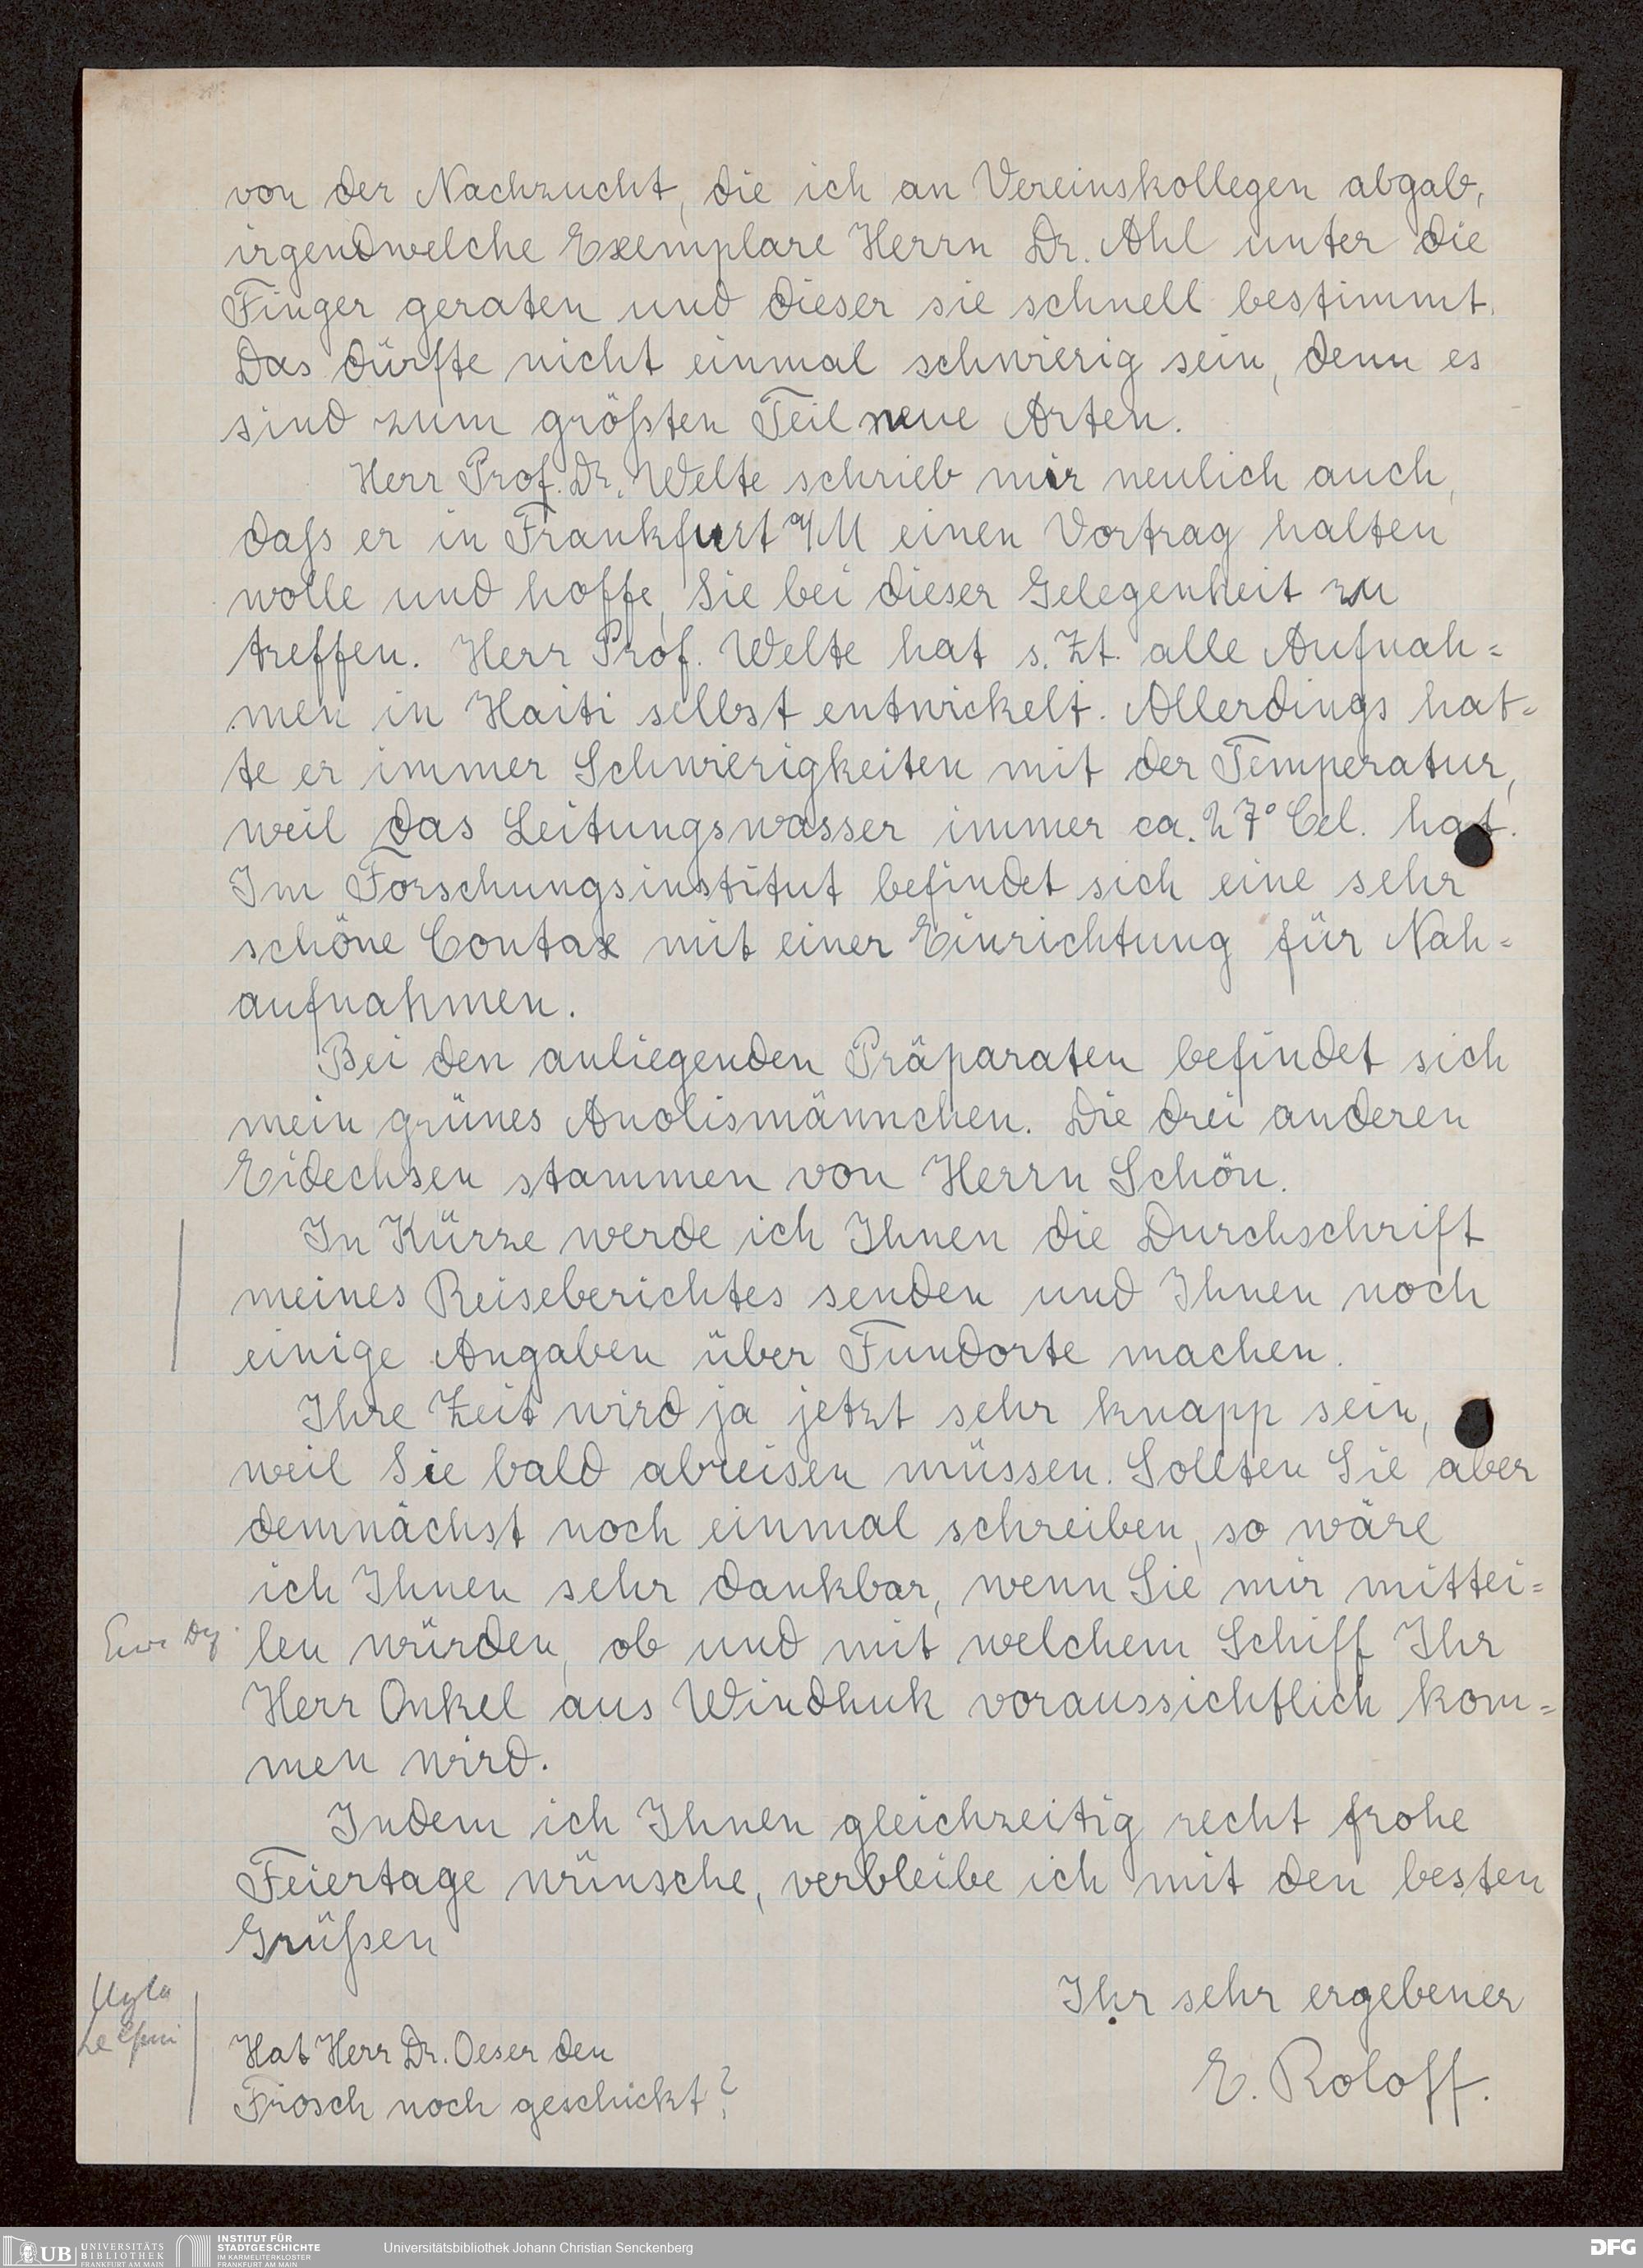 von der Nachzucht, die ich an Vereinskollegen abgab,
irgendwelche Exemplare Herrn Dr. Ahl unter die
Finger geraten und dieser sie schnell bestimmt.
Das dürfte nicht einmal schwierig sein, denn es
sind zum größten Teil neue Arten.
Herr Prof. Dr. Welte schrieb mir neulich auch,
daß er in Frankfurt a/M einen Vortrag halten
wolle und hoffe, Sie bei dieser Gelegenheit zu
treffen. Herr Prof. Welte hat s. Zt. alle Aufnah=
men in Haiti selbst entwickelt. Allerdings hat=
te er immer Schwierigkeiten mit der Temperatur,
weil das Leitungswasser immer ca. 27° Cel. hat.
Im Forschungsinstitut befindet sich eine sehr
schöne Contax mit einer Einrichtung für Nah=
aufnahmen.
Bei den anliegenden Präparaten befindet sich
mein grünes Anolismännchen. Die drei anderen
Eidechsen stammen von Herrn Schön.
In Kürze werde ich Ihnen die Durchschrift
meines Reiseberichtes senden und Ihnen noch
einige Angaben über Fundorte machen.
Ihre Zeit wird ja jetzt sehr knapp sein,
weil Sie bald abreisen müssen. Sollten Sie aber
demnächst noch einmal schreiben, so wäre
ich Ihnen sehr dankbar, wenn Sie mir mittei=
len würden, ob und mit welchem Schiff Ihr
Herr Onkel aus Windhuk voraussichtlich kom=
men wird.
Indem ich Ihnen gleichzeitig recht frohe
Feiertage wünsche, verbleibe ich mit den besten
Grüßen
Ihr sehr ergebener
E. Roloff.
Hyla
Hat Herr Dr. Oeser den
Frosch noch geschickt?
UB UNIVERSITÄTS BIBLIOTHEK FRANKFURT AM MAIN
INSTITUT FÜR STADTGESCHICHTE IM KARMELITERKLOSTER FRANKFURT AM MAIN
Universitätsbibliothek Johann Christian Senckenberg
DFG